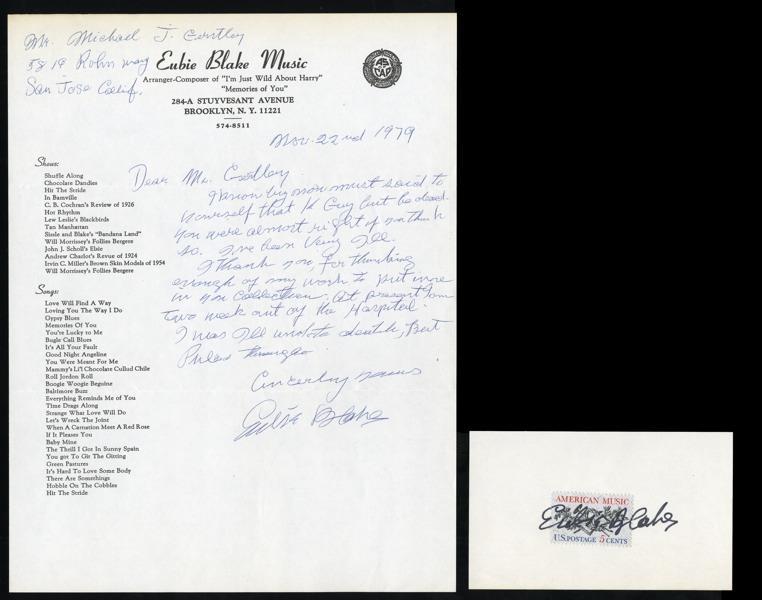 Mr. Michael J. Gertley
5819 Rohn Way
San Jose Calif.
Eubie Blake Music
Arranger-Composer of "I'm Just Wild About Harry"
"Memories of You"
284-A STUYVESANT AVENUE
BROOKLYN, N. Y. 11221
574-8511
ASCAP
Nov. 22nd 1979
Dear Mr.
you now must said to
yourself that Guy but be dead.
You were almost right if you think
so. I've been Very Ill.
I thank you, for thinking
enough of my work to Put mine
in you Collection. At present I am
two week out of the Hospital.
I was Ill unto death, But
Puled through
Sincerley yours
Eubie Blake
Shows:
Shuffle Along
Chocolate Dandies
Hit The Stride
In Bamville
C. B. Cochran's Review of 1926
Hot Rhythm
Lew Leslie's Blackbirds
Tan Manhattan
Sissle and Blake's "Bandana Land"
Will Morrissey's Follies Bergere
John J. Scholl's Elsie
Andrew Charlot's Revue of 1924
Irvin C. Miller's Brown Skin Models of 1954
Will Morrissey's Follies Bergere
Songs:
Love Will Find A Way
Loving You The Way I Do
Gypsy Blues
Memories Of You
You're Lucky to Me
Bugle Call Blues
It's All Your Fault
Good Night Angeline
You Were Meant For Me
Mammy's Li'l Chocolate Cullud Chile
Roll Jordon Roll
Boogie Woogie Beguine
Baltimore Buzz
Everything Reminds Me of You
Time Drags Along
Strange What Love Will Do
Let's Wreck The Joint
When A Carnation Meet A Red Rose
If It Pleases You
Baby Mine
The Thrill I Got In Sunny Spain
You got To Git The Gitting
Green Pastures
It's Hard To Love Some Body
There Are Somethings
Hobble On The Cobbles
Hit The Stride
AMERICAN MUSIC
Eubie Blake
U.S. POSTAGE 5 CENTS